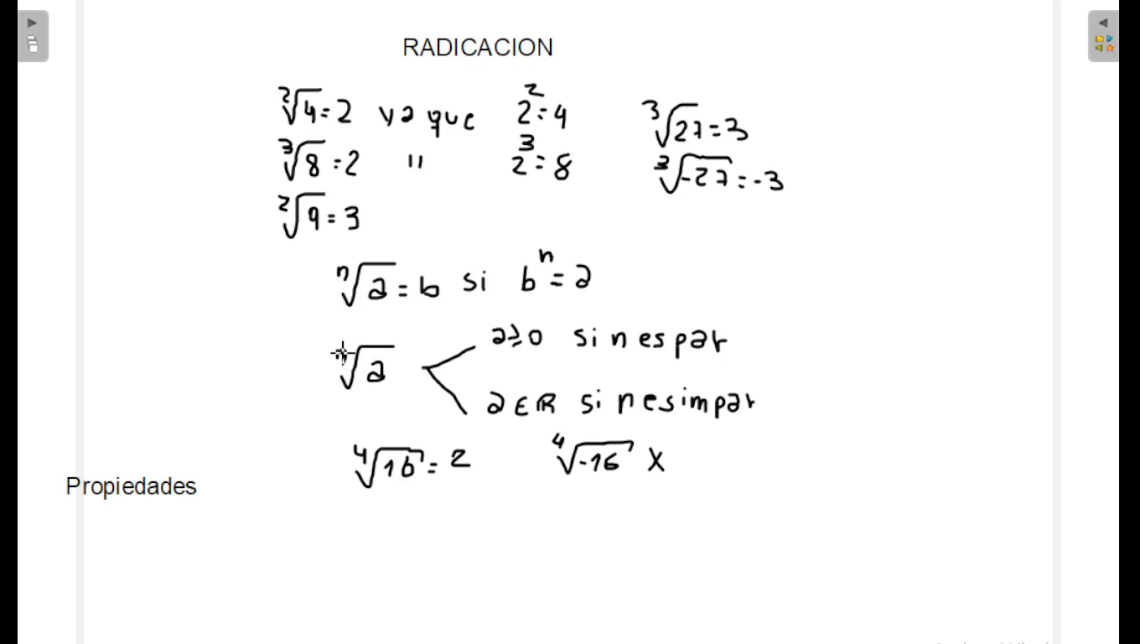 RADICACION
²√4 = 2 ya que 2² = 4 ³√27 = 3
³√8 = 2 " 2³ = 8 ³√-27 = -3
²√9 = 3
ⁿ√a = b si bⁿ = a
√a a≥0 si n es par
a∈R si n es impar
⁴√16 = 2 ⁴√-16 X
Propiedades